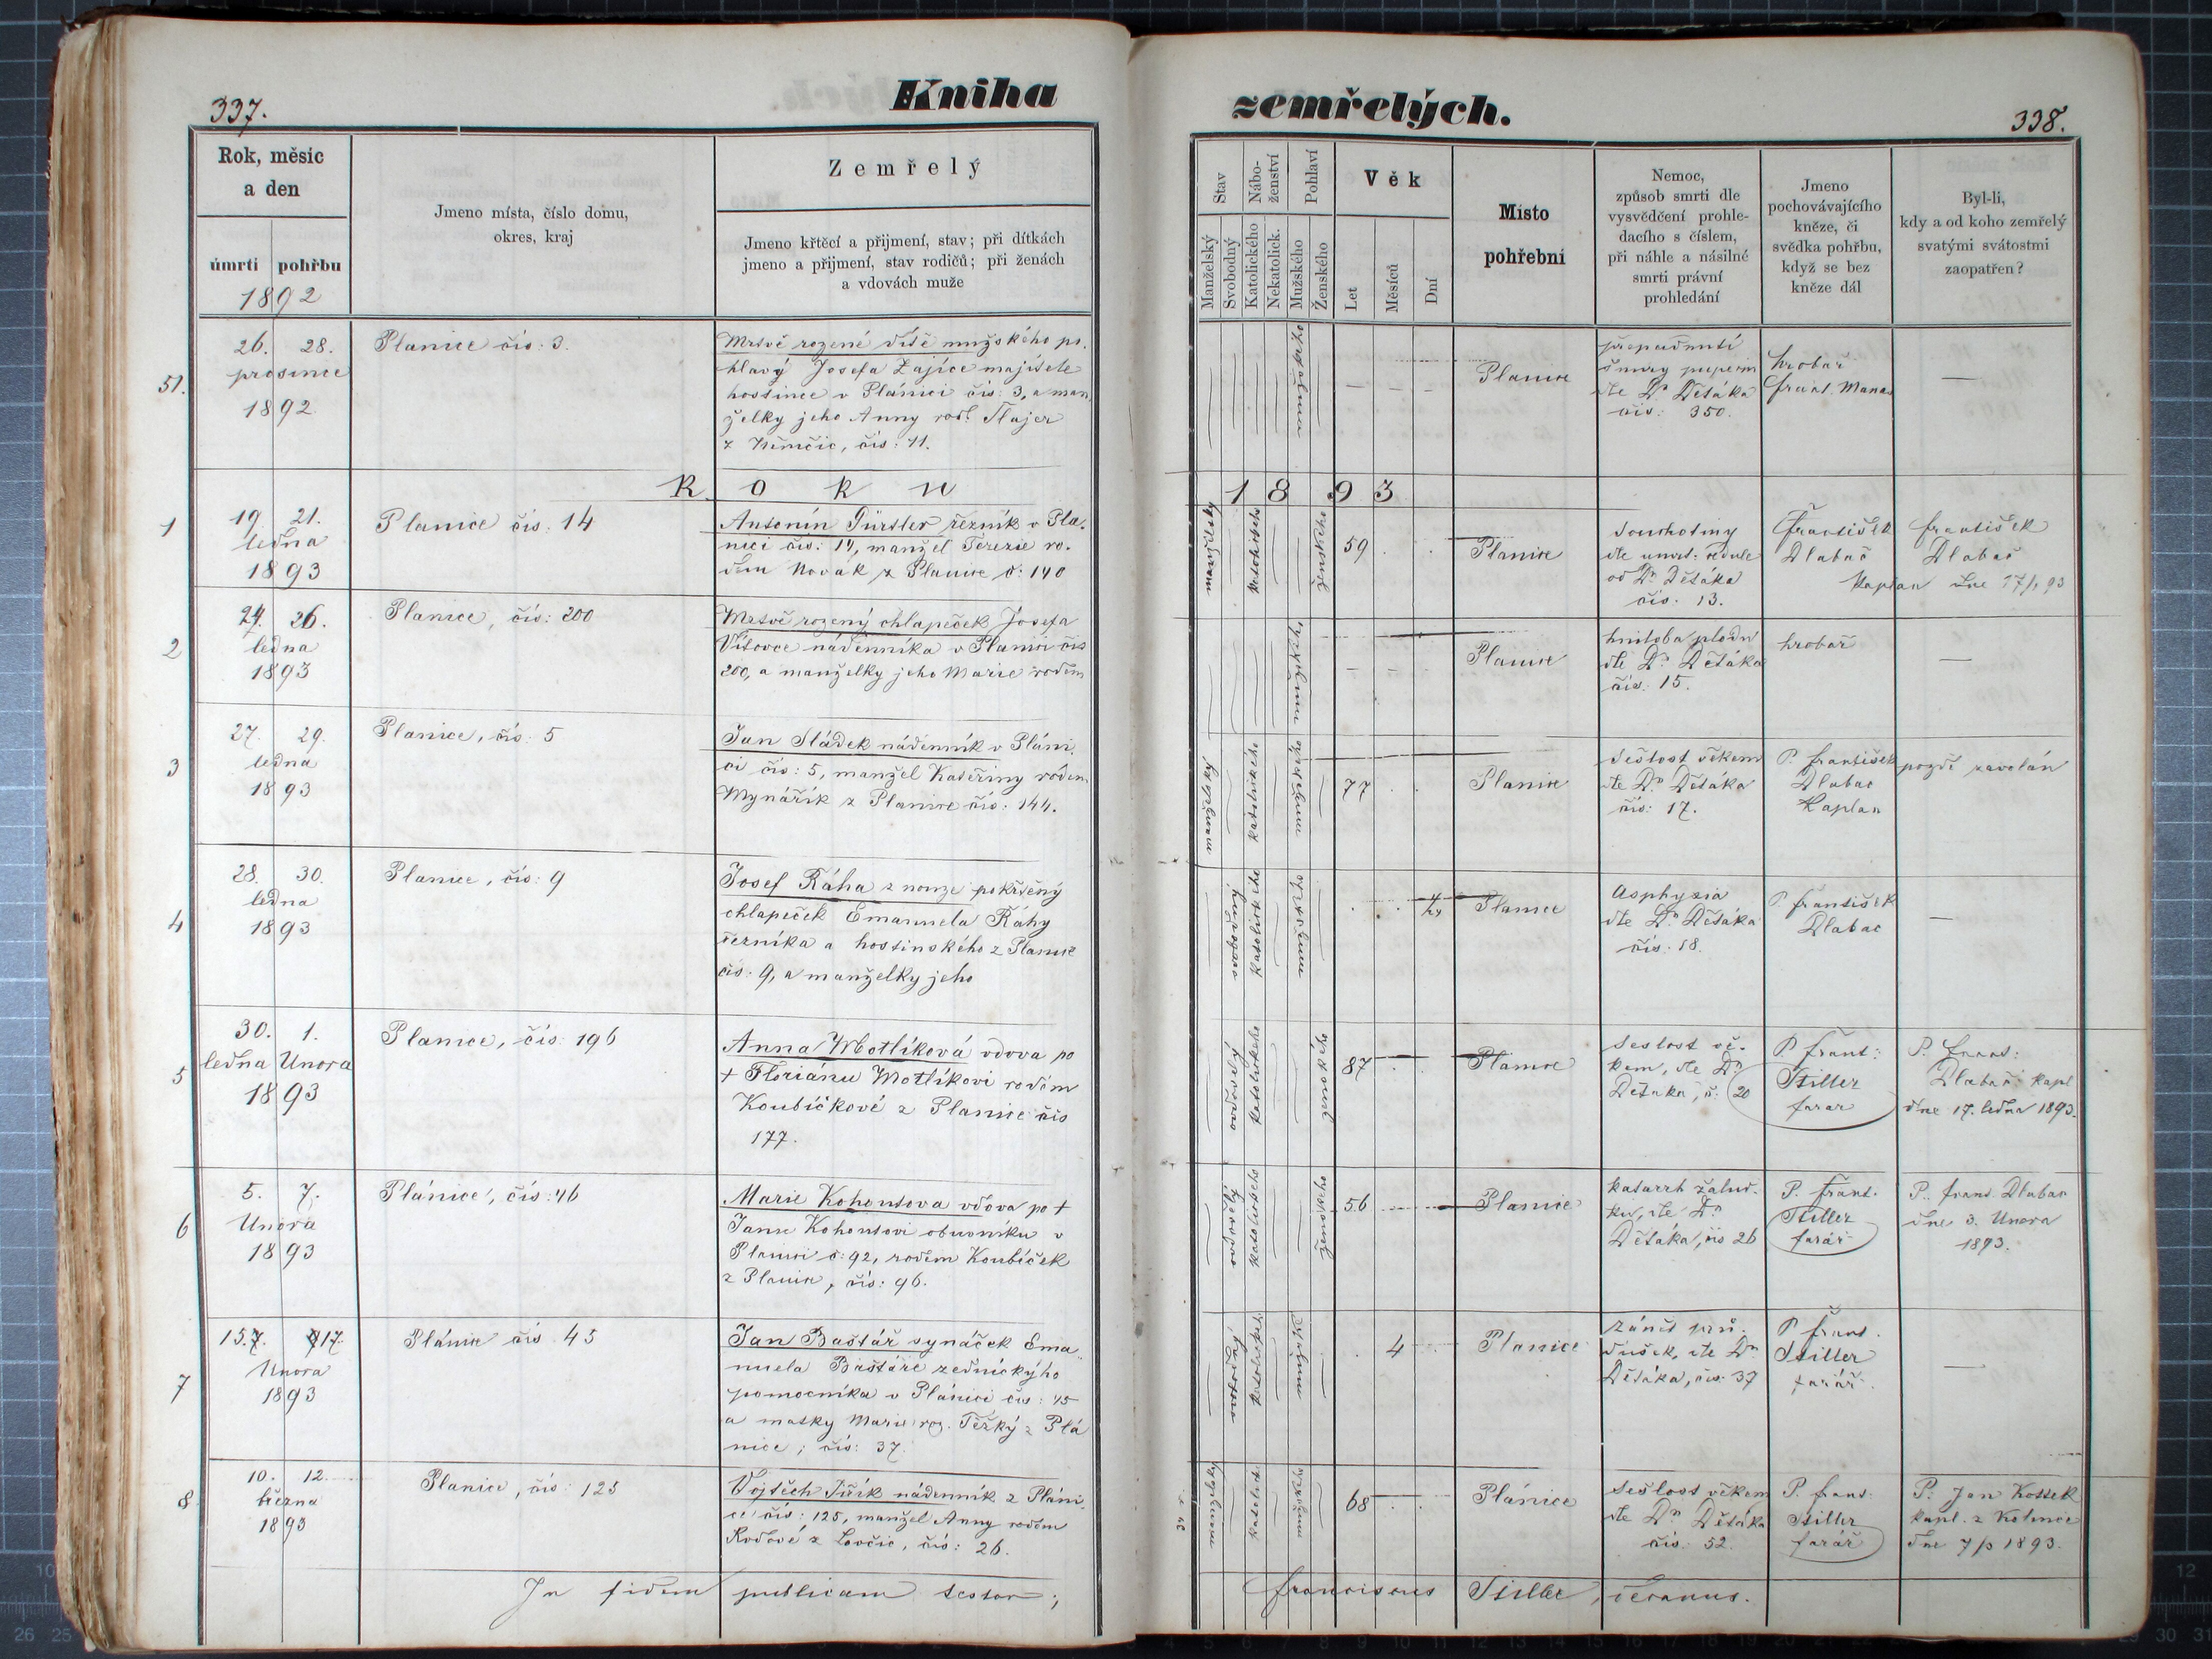 337.
Kniha
Rok, měsíc
a den
úmrtí pohřbu
1892
Jmeno místa, číslo domu,
okres, kraj
Zemřelý
Jmeno křtěcí a přijmení, stav; při dítkách
jmeno a přijmení, stav rodičů; při ženách
a vdovách muže
51. 26. 28.
prosince
1892
Planice čís: 3.
Mrtvě rozené dítě mužského po-
hlaví Josefa Zajíce majitele
hostince v Plánici čís: 3, a man
želky jeho Anny roz.
z Němčic, čís: 11.
Roku
1 19. 21.
ledna
1893
Planice čís. 14
Antonín Pürstler řezník v Pla-
nici čís: 14, manžel Terezie ro-
dem Novák z Planice č: 140
2 24. 26.
ledna
1893
Planice, čís: 200
Mrtvě rozený chlapeček Josefa
nádenníka v Planici čís
200, a manželky jeho Marie rodem
3 27. 29.
ledna
1893
Planice, čís: 5
Jan Sládek nádenník v Pláni-
ci čís: 5, manžel Kateřiny rodem
Mynářík z Planice čís: 144.
4 28. 30.
ledna
1893
Planice, čís: 9
Josef Ráha z nouze pokřtěný
chlapeček Emanuela Ráhy
řezníka a hostinského z Planice
čís: 9, a manželky jeho
5 30. 1.
ledna Unora
1893
Planice, čís: 196
Anna Motlíková vdova po
+ Floriánu Motlíkovi rodem
Koubíčkové z Planice čís
177.
6 5. 7.
Unora
1893
Plánice, čís: 46
Marie Kohoutova vdova po +
Janu Kohoutovi obuvníku v
Planici č: 92, rodem Koubíček
z Planice, čís: 96.
7 15. 17.
Unora
1893
Plánice čís 45
Jan Baštář synáček Ema-
nuela Baštáře zednickýho
pomocníka v Plánici čís: 45
a matky Marie roz. Těžký z Plá
nice; čís: 37.
8 10. 12.
března
1893
Planice, čís: 125
Vojtěch Jiřík nádenník z Pláni-
ce čís: 125, manžel Anny rodem
z Lovčic, čís: 26.
In fidem publicam testor;
zemřelých.
338.
Stav
Manželský
Svobodný
Nábo-
ženství
Katolického
Nekatolick.
Pohlaví
Mužského
Ženského
Věk
Let
Měsíců
Dní
Místo
pohřební
Nemoc,
způsob smrti dle
vysvědčení prohle-
dacího s číslem,
při náhle a násilné
smrti právní
prohledání
Jmeno
pochovávajícího
kněze, či
svědka pohřbu,
když se bez
kněze dál
Byl-li,
kdy a od koho zemřelý
svatými svátostmi
zaopatřen?
mužského
Planice
přepadnutí
šnury pupeční
dle Dr Děťáka
čís: 350.
hrobař
frant. Manas
1893
manželský
katolického
ženského
59
Planice
Souchotiny
dle umrt. cedule
od Dr Děťáka
čís. 13.
František
Dlabač
Kaplan
František
Dlabač
dne 17/1 93
mužského
Planice
hniloba plodu
dle Dr Děťáka
čís: 15.
hrobař
manželský
katolického
mužského
77
Planice
Sešlost věkem
dle Dr Děťáka
čís: 17.
P. František
Dlabač
Kaplan
pozdě zavolán
svobodný
katolického
mužského
Planice
Asphyxia
dle Dr Děťáka
čís. 18.
P. František
Dlabač
ovdovělý
katolického
ženského
87
Planice
Sešlost vě-
kem, dle Dr
Děťáka, č: 20
P. Frant:
Stiller
farář
P. Frant:
Dlabač kapl
dne 17. ledna 1893.
ovdovělý
katolického
ženského
56
Planice
Katarrh žalud-
ku, dle Dr
Děťáka, čís 26
P. Frant.
Stiller
farář
P. Frant. Dlabač
dne 3. Unora
1893.
svobodný
katolického
mužského
4
Planice
Zánět prů-
dušek, dle Dr
Děťáka, čís: 37
P. Frant.
Stiller
farář
manželský
katolick.
mužského
68
Plánice
Sešlost věkem
dle Dr Děťáka
čís: 52.
P. Frant:
Stiller
farář
P. Jan Kottek
kapl. z Kolince
dne 7/3 1893.
Franciscus Stiller, decanus.